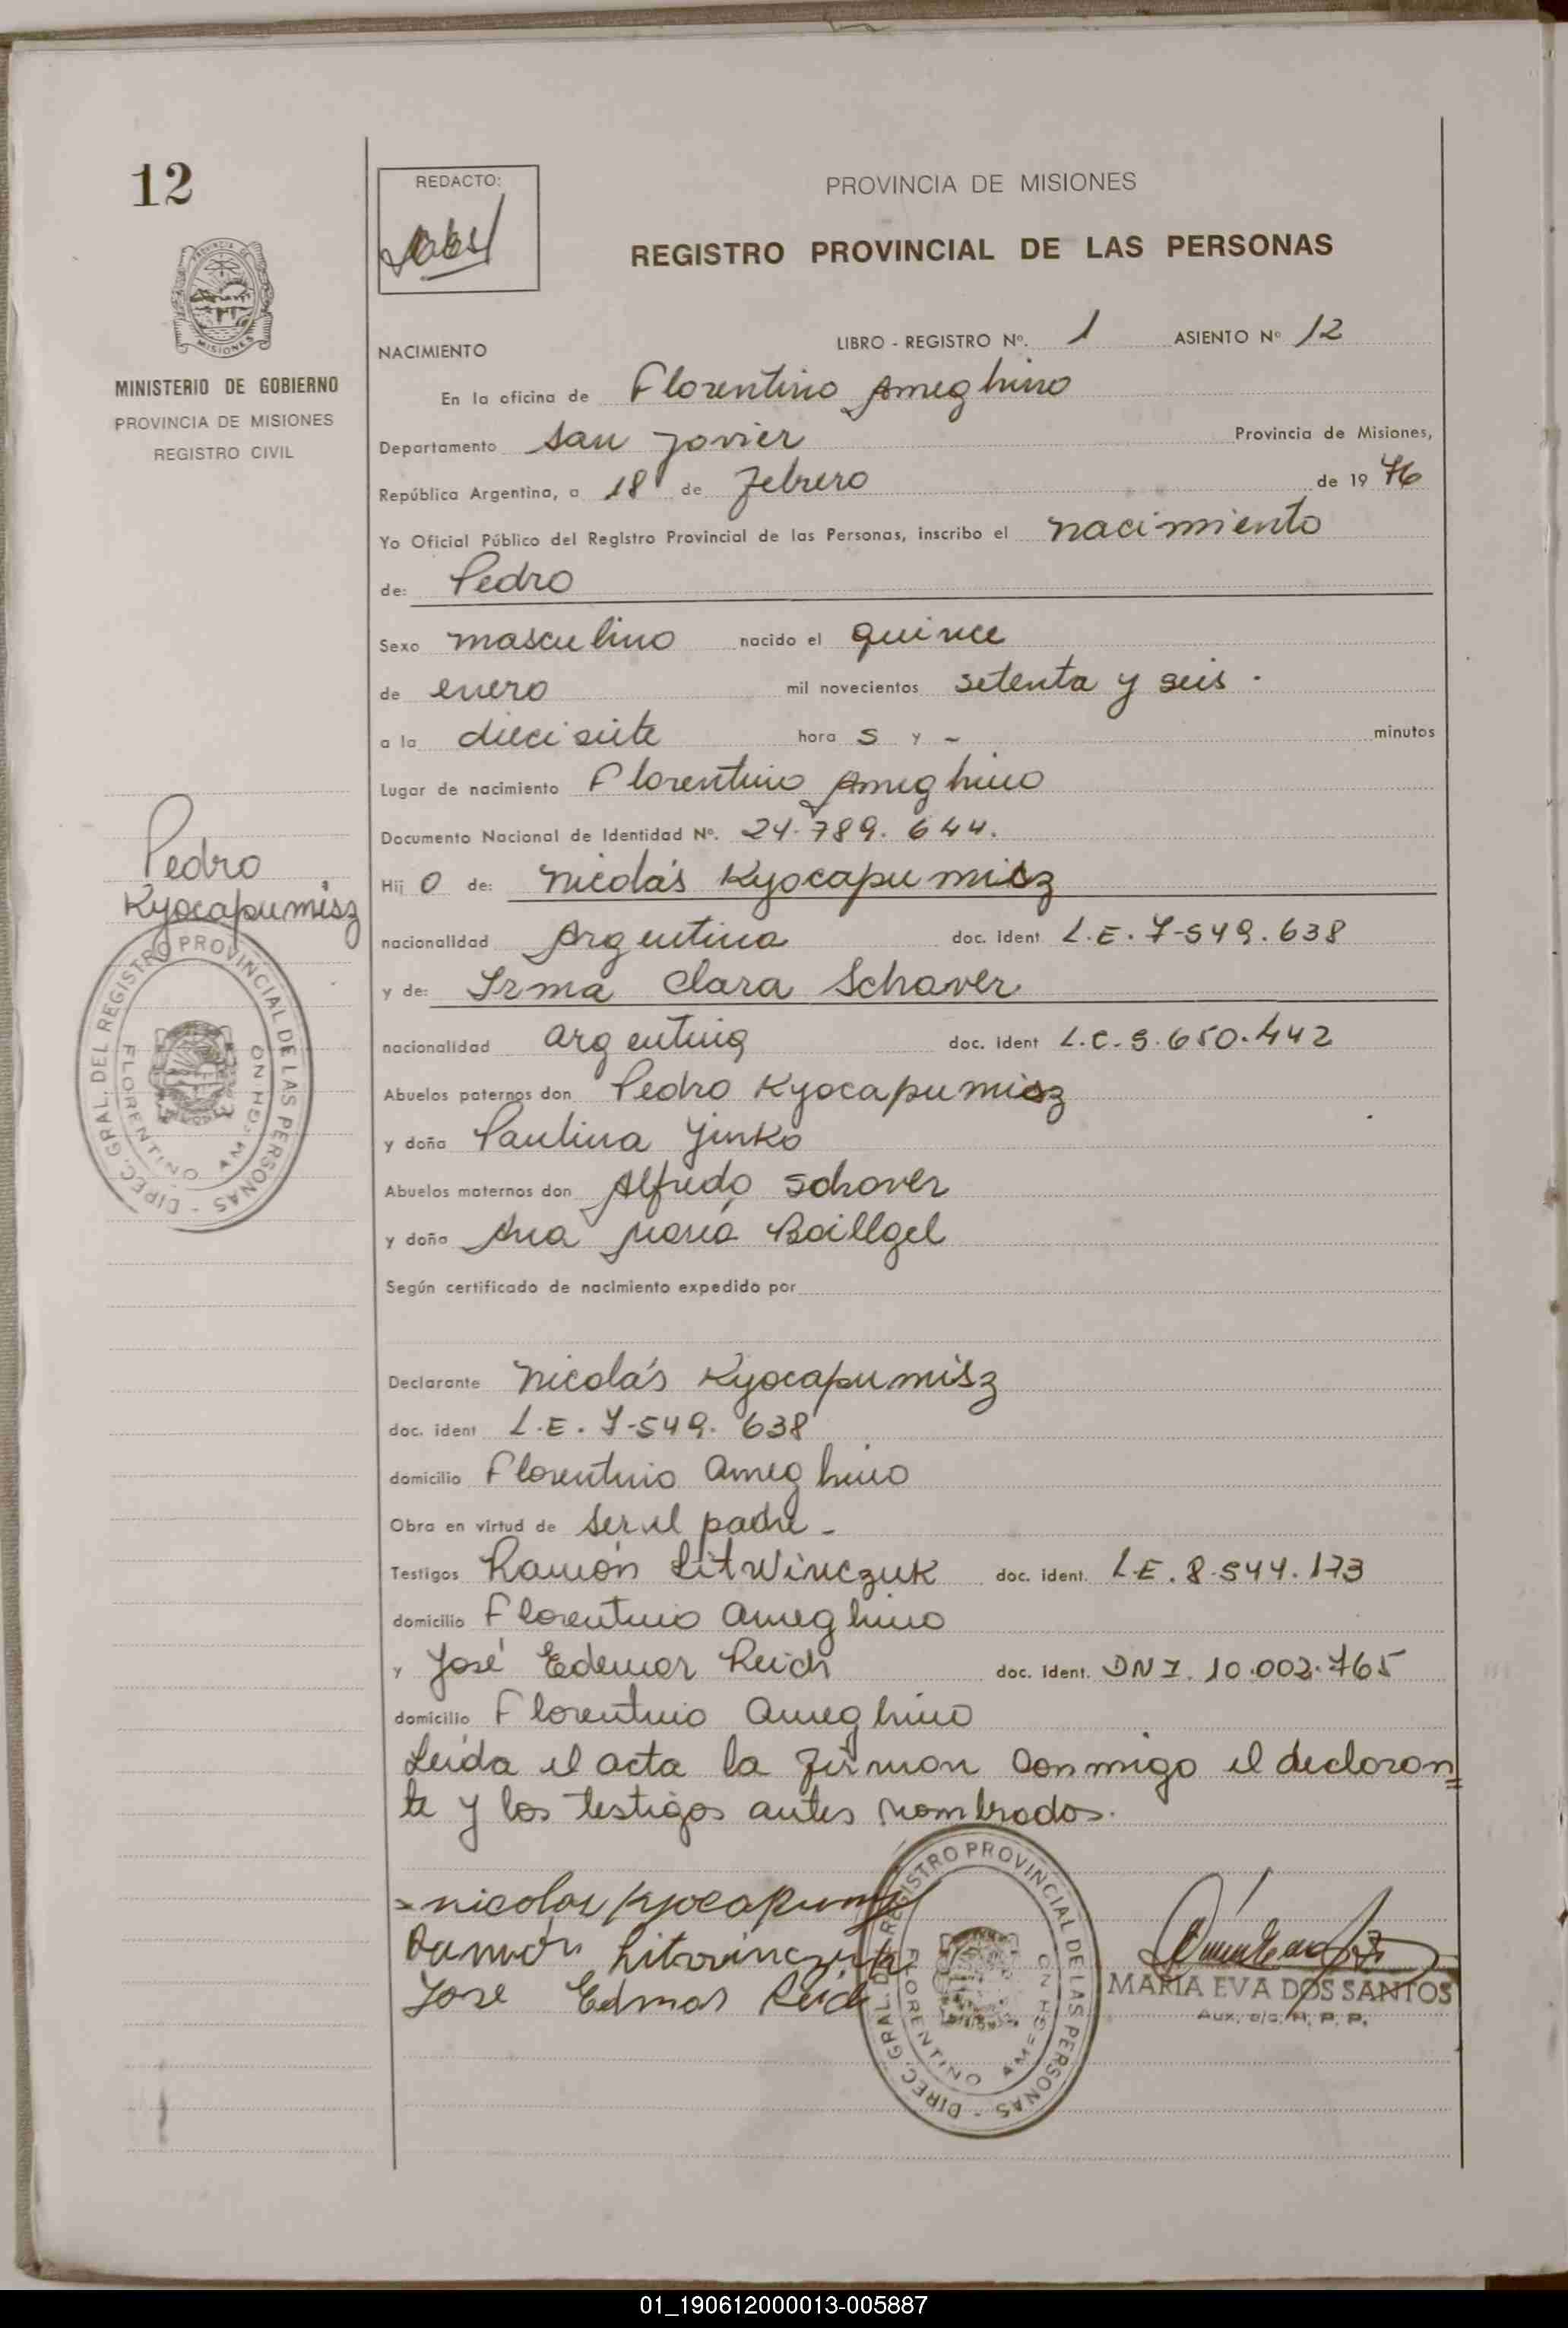 12
REDACTO:
PROVINCIA DE MISIONES
REGISTRO PROVINCIAL DE LAS PERSONAS
MISIONES
MINISTERIO DE GOBIERNO
PROVINCIA DE MISIONES
REGISTRO CIVIL
NACIMIENTO LIBRO - REGISTRO Nº. 1 ASIENTO Nº 12
En la oficina de Florentino Ameghino
Departamento San Javier Provincia de Misiones,
República Argentina, a 18 de Febrero de 1976
Yo Oficial Público del Registro Provincial de las Personas, inscribo el nacimiento
de: Pedro
Sexo masculino nacido el quince
de enero mil novecientos setenta y seis.
a la diecisiete hora s y - minutos
Lugar de nacimiento Florentino Ameghino
Documento Nacional de Identidad Nº. 24.789.644.
Pedro
Kyocapumisz
Hij o de: Nicolás Kyocapumisz
nacionalidad Argentina doc. ident L.E. 7-549.638
y de: Irma Clara Schaver
nacionalidad argentina doc. ident L.C.5.650.442
Abuelos paternos don Pedro Kyocapumisz
y doña Paulina Yinko
Abuelos maternos don Alfredo Schaver
y doña Ana María
Según certificado de nacimiento expedido por
DIREC. GRAL. DEL REGISTRO PROVINCIAL DE LAS PERSONAS
FLORENTINO AMEGHINO
Declarante Nicolás Kyocapumisz
doc. ident L.E. 7-549.638
domicilio Florentino Ameghino
Obra en virtud de ser el padre -
Testigos Ramón Litwinczuk doc. ident. L.E. 8-544.173
domicilio Florentino Ameghino
y José Edemar Reich doc. ident. DNI. 10.002.765
domicilio Florentino Ameghino
Leída el acta la firman conmigo el declaran=
te y los testigos antes nombrados.
Nicolas
Ramón Litwinczuk
Jose Edmar Reich
DIREC. GRAL. DEL REGISTRO PROVINCIAL DE LAS PERSONAS
FLORENTINO AMEGHINO
MARIA EVA DOS SANTOS
01_190612000013-005887